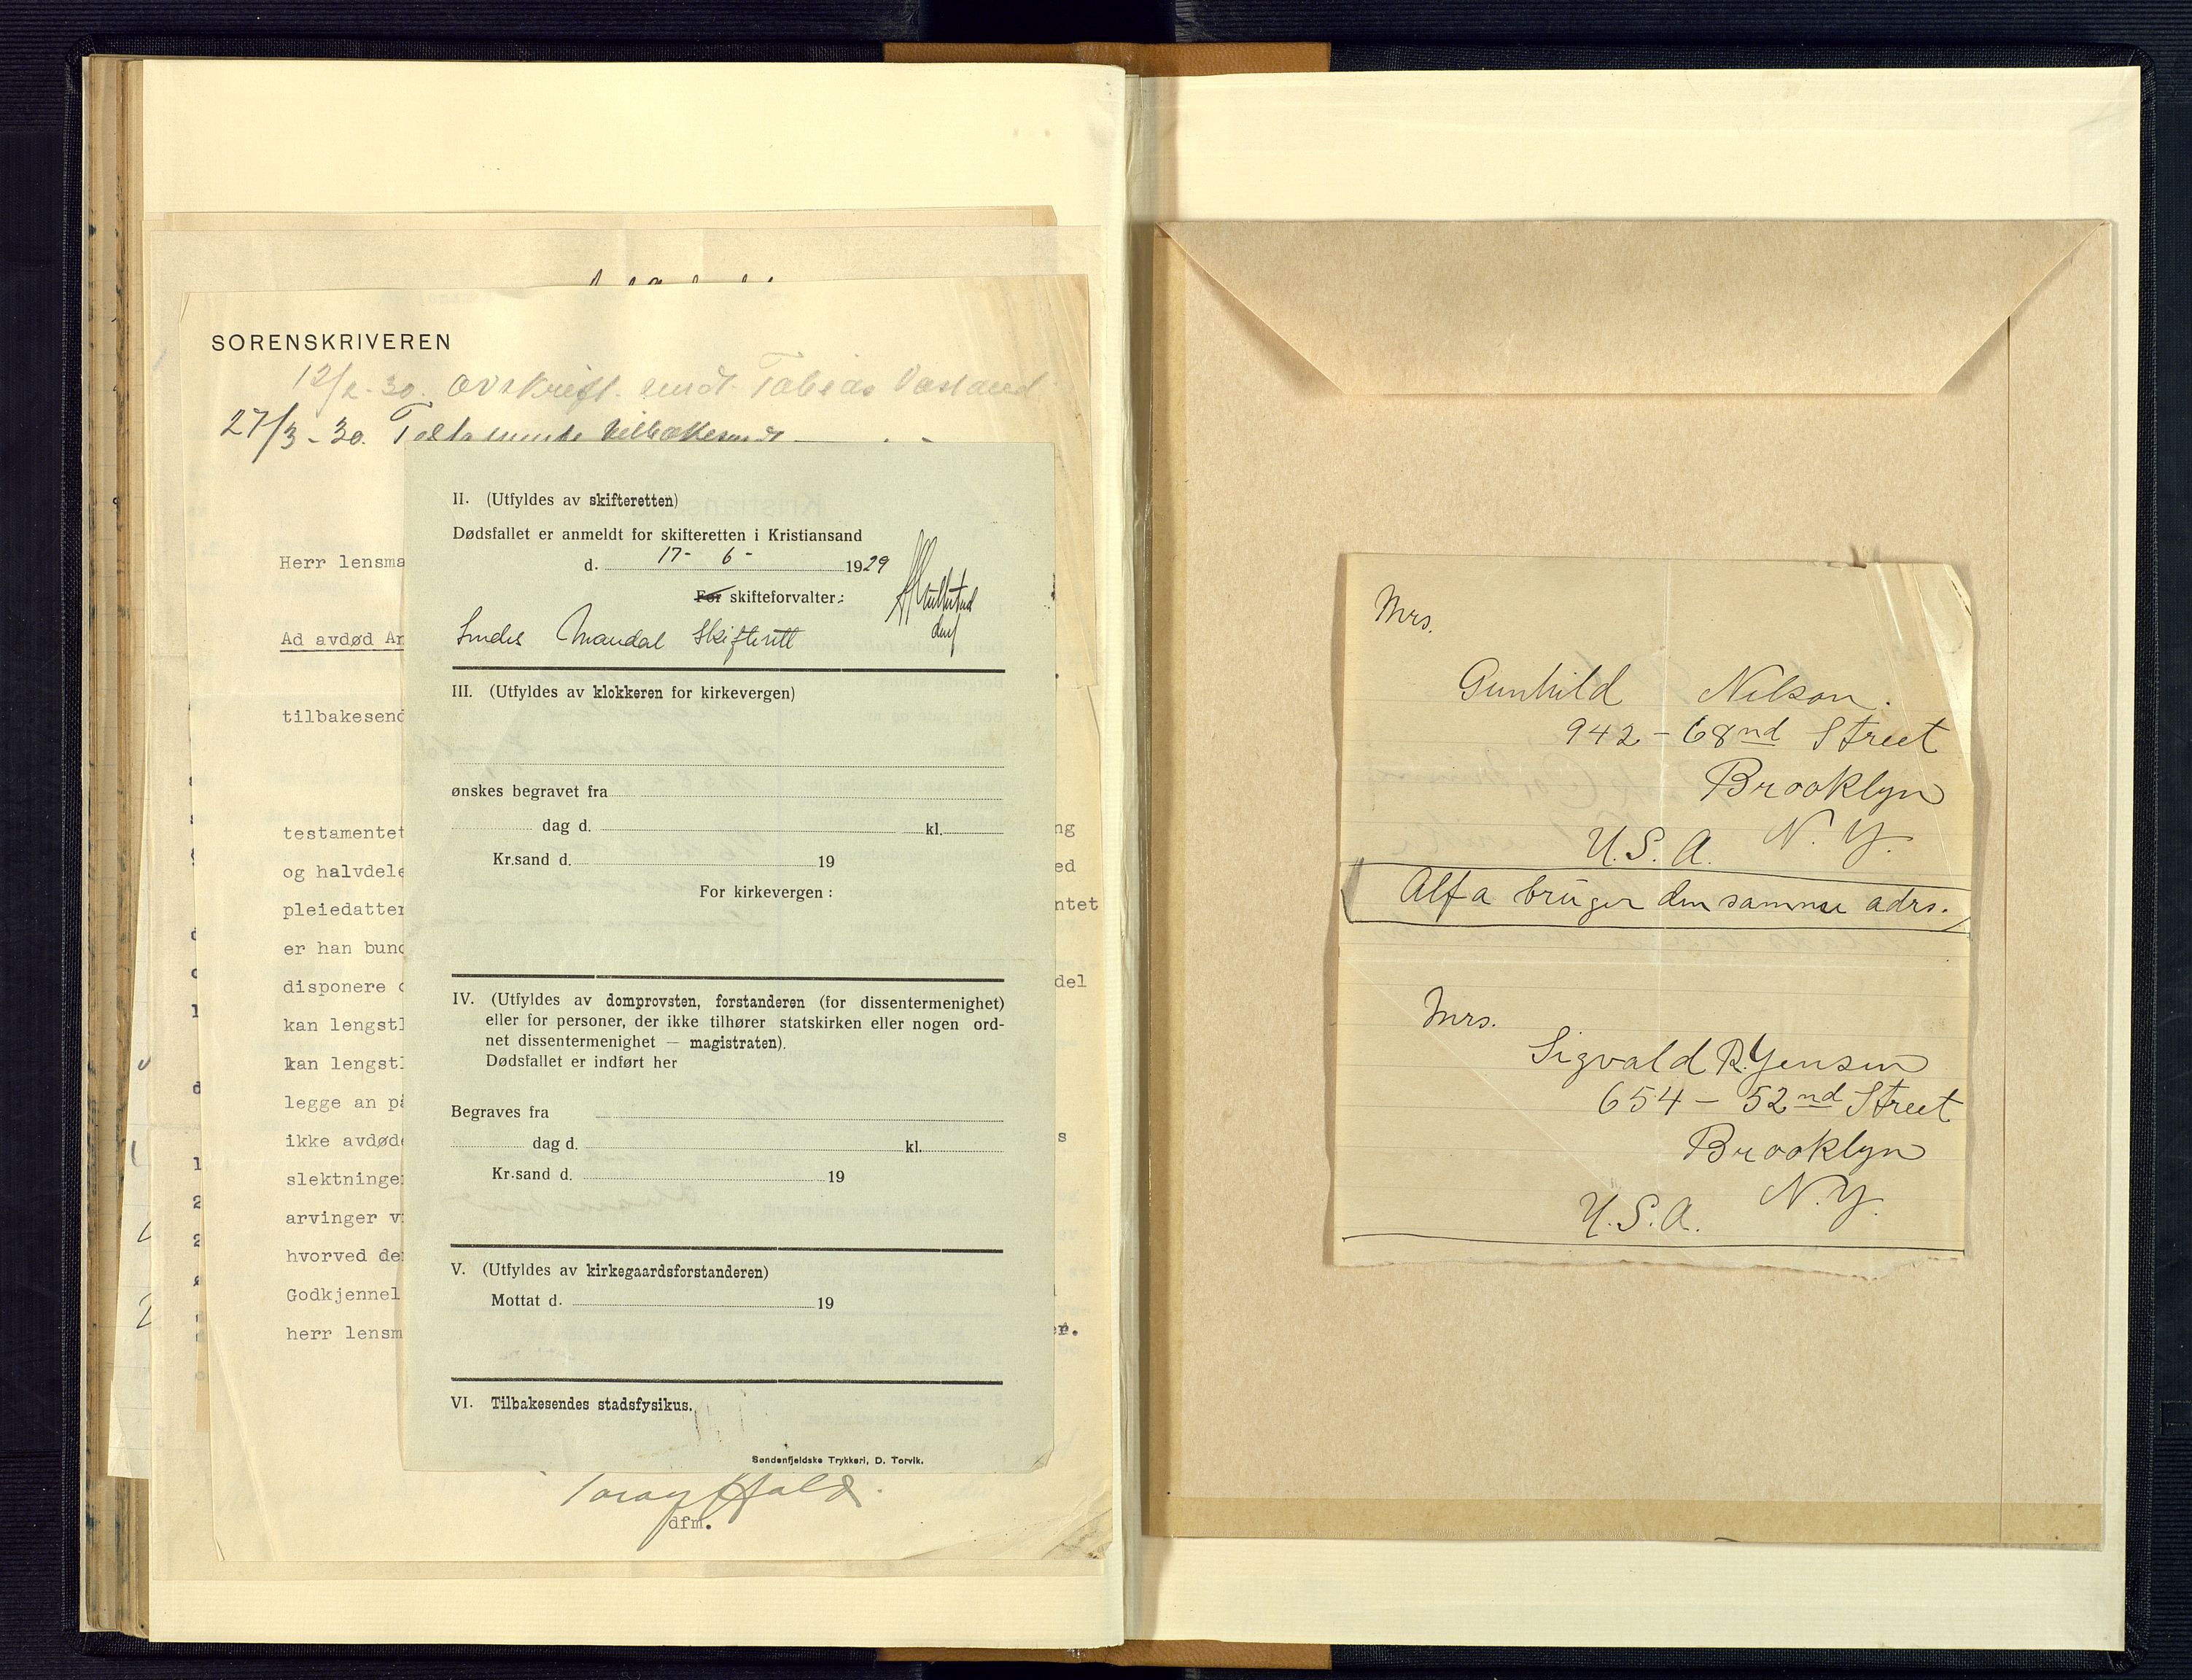 SORENSKRIVEREN
12/2-30. Avskrift sendt Tobias Vasland
27/3-30. Testamente tilbakesendt
Herr lensma
Ad avdød An
tilbakesend
testamentet
og halvdele
pleiedatter
er han bund
disponere
kan lengstl
kan lengstl
legge an på
ikke avdøde
slektninge
arvinger v
hvorved de
Godkjennel
herr lensm
ng
ed
ntet
del
s
er.
II. (Utfyldes av skifteretten)
Dødsfallet er anmeldt for skifteretten i Kristiansand
d. 17- 6- 1929
For skifteforvalter:
Sendes Mandal Skifterett
III. (Utfyldes av klokkeren for kirkevergen)
ønskes begravet fra
dag d. kl.
Kr.sand d. 19
For kirkevergen:
IV. (Utfyldes av domprovsten, forstanderen (for dissentermenighet)
eller for personer, der ikke tilhører statskirken eller nogen ord-
net dissentermenighet — magistraten).
Dødsfallet er indført her
Begraves fra
dag d. kl.
Kr.sand d. 19
V. (Utfyldes av kirkegaardsforstanderen)
Mottat d. 19
VI. Tilbakesendes stadsfysikus.
Søndenfjeldske Trykkeri, D. Torvik.
dfm.
Mrs.
Gunhild Nilson.
942 - 68nd Street
Brooklyn
U.S.A. N.Y.
Alfa brüger den samme adrs.
Mrs.
Sigvald R. Jensen
654 - 52nd Street
Brooklyn
U.S.A. N.Y.